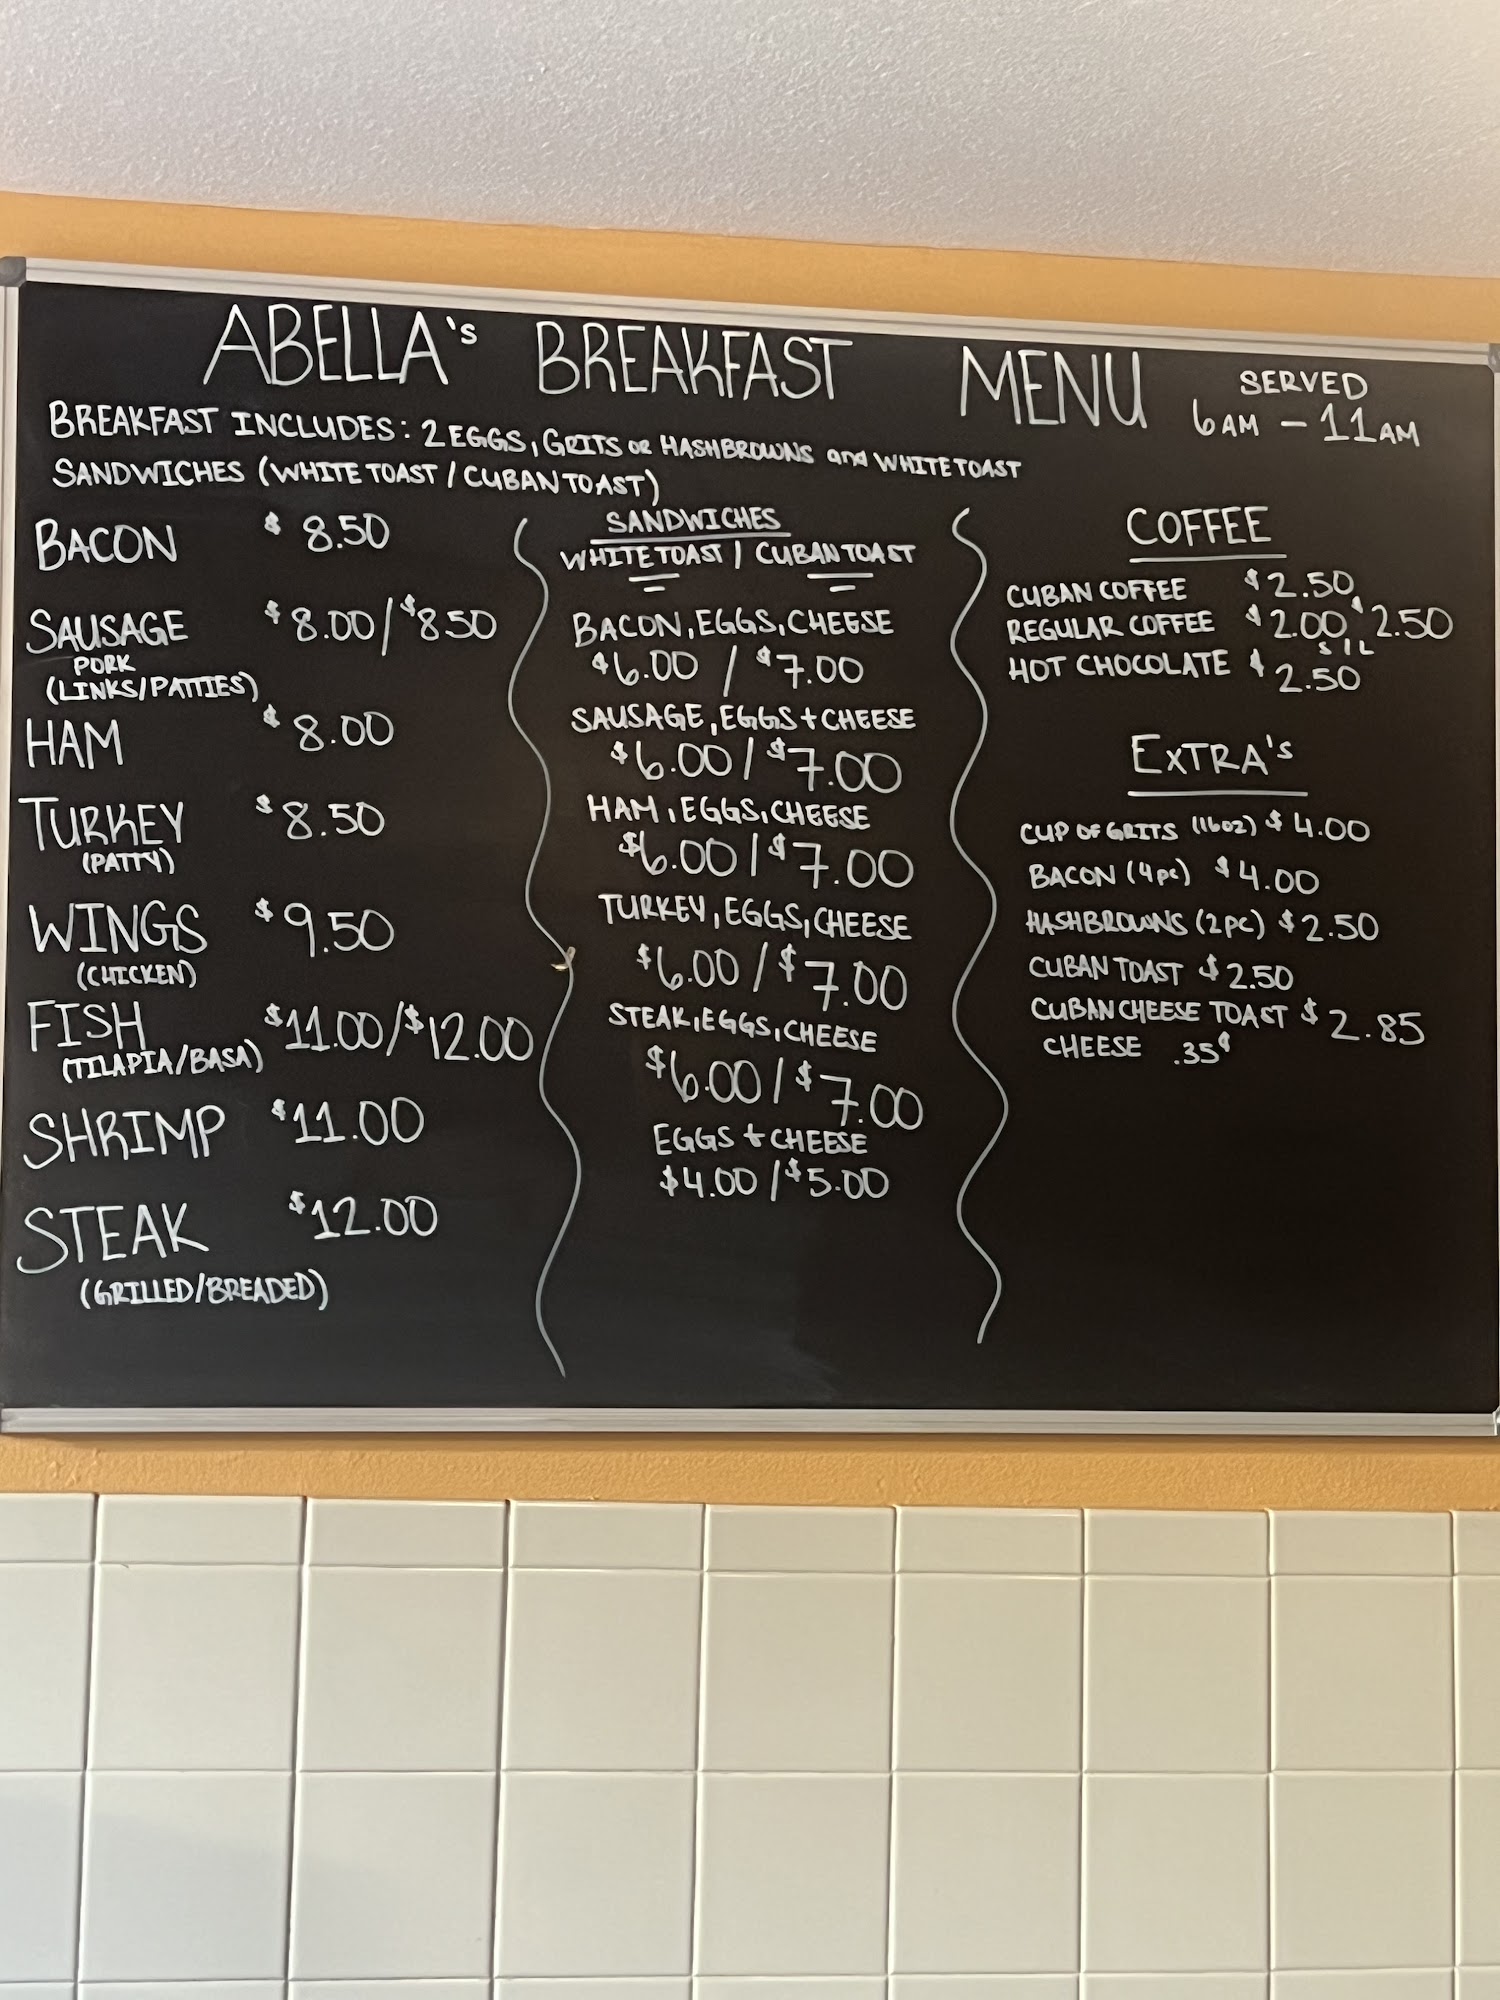 ABELLA's BREAKFAST MENU
SERVED
6AM - 11AM
BREAKFAST INCLUDES: 2 EGGS, GRITS OR HASHBROWNS and WHITE TOAST
SANDWICHES (WHITE TOAST / CUBAN TOAST)
BACON $8.50
SAUSAGE $8.00/$8.50
PORK
(LINKS/PATTIES)
HAM $8.00
TURKEY $8.50
(PATTY)
WINGS $9.50
(CHICKEN)
FISH $11.00/$12.00
(TILAPIA/BASA)
SHRIMP $11.00
STEAK $12.00
(GRILLED/BREADED)
SANDWICHES
WHITE TOAST | CUBAN TOAST
BACON, EGGS, CHEESE
$6.00 / $7.00
SAUSAGE, EGGS + CHEESE
$6.00 / $7.00
HAM, EGGS, CHEESE
$6.00 / $7.00
TURKEY, EGGS, CHEESE
$6.00 / $7.00
STEAK, EGGS, CHEESE
$6.00 / $7.00
EGGS + CHEESE
$4.00 / $5.00
COFFEE
CUBAN COFFEE $2.50
REGULAR COFFEE $2.00 $2.50
S / L
HOT CHOCOLATE $2.50
EXTRA's
CUP OF GRITS (16oz) $4.00
BACON (4pc) $4.00
HASHBROWNS (2PC) $2.50
CUBAN TOAST $2.50
CUBAN CHEESE TOAST $2.85
CHEESE .35¢